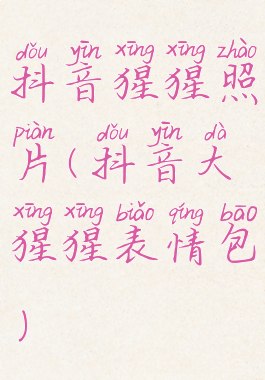 dǒu yīn xīng xīng zhào
抖音猩猩照
piàn dǒu yīn dà
片(抖音大
xīng xīng biǎo qíng bāo
猩猩表情包
)